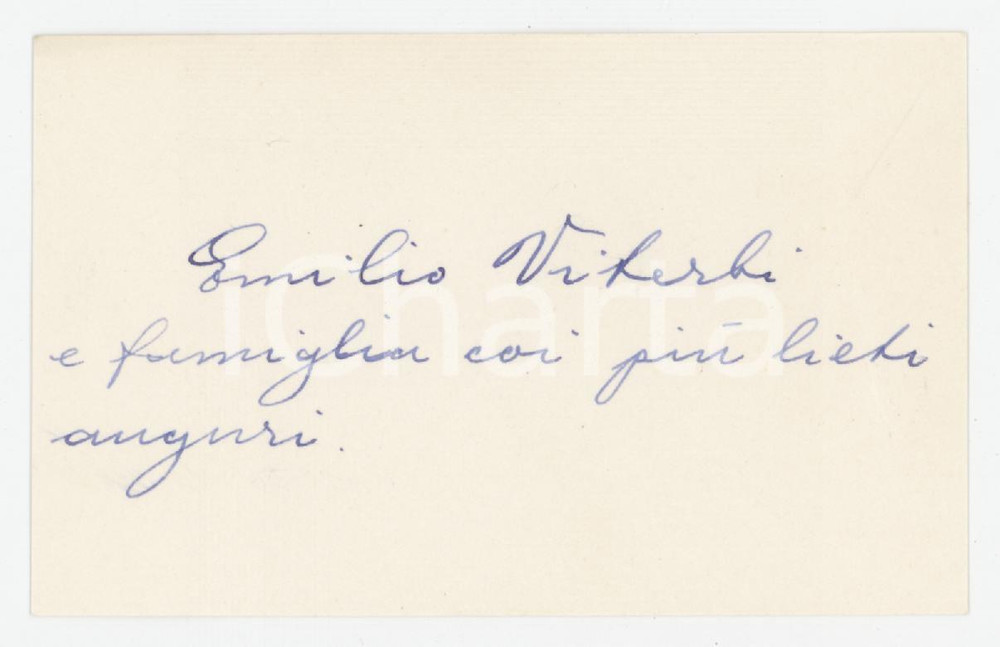 Emilio Viterbi
e famiglia coi più lieti
auguri.
iCharta